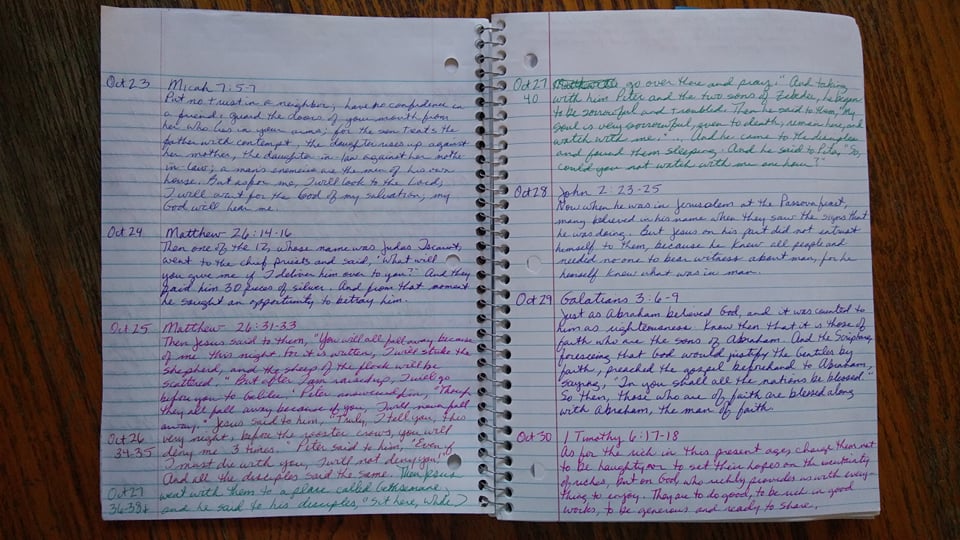 Oct 23 Micah 7:5-7
Put no trust in a neighbor; have no confidence in
a friend; guard the doors of your mouth from
her who lies in your arms; for the son treats the
father with contempt, the daughter rises up against
her mother, the daughter-in-law against her mother
in law; a man's enemies are the men of his own
house. But as for me, I will look to the Lord,
I will wait for the God of my salvation, my
God will hear me.
Oct 24 Matthew 26:14-16
Then one of the 12, whose name was Judas Iscariot,
went to the chief priests and said, "What will
you give me if I deliver him over to you?" And they
paid him 30 pieces of silver. And from that moment
he sought an opportunity to betray him.
Oct 25 Matthew 26:31-33
Then Jesus said to them, "You will all fall away because
of me this night. For it is written, I will strike the
shepherd, and the sheep of the flock will be
scattered." But after I am raised up, I will go
before you to Galilee." Peter answered him, "Though
they all fall away because of you, I will never fall
away." Jesus said to him, "Truly, I tell you, this
Oct 26 very night, before the rooster crows, you will
34-35 deny me 3 times." Peter said to him, "Even if
I must die with you, I will not deny you!"
And all the disciples said the same. Then Jesus
Oct 27 went with them to a place called Gethsemane,
36-38+ and he said to his disciples, "Sit here, while
Oct 27 go over there and pray." And taking
40 with him Peter and the two sons of Zebedee, he began
to be sorrowful and troubled. Then he said to them, "My
soul is very sorrowful, even to death; remain here, and
watch with me." And he came to the disciples
and found them sleeping. And he said to Peter, "So,
could you not watch with me one hour?"
Oct 28 John 2:23-25
Now when he was in Jerusalem at the Passover feast,
many believed in his name when they saw the signs that
he was doing. But Jesus on his part did not entrust
himself to them, because he knew all people and
needed no one to bear witness about man, for he
himself knew what was in man.
Oct 29 Galatians 3:6-9
Just as Abraham believed God, and it was counted to
him as righteousness. Know then that it is those of
faith who are the sons of Abraham. And the Scripture,
foreseeing that God would justify the Gentiles by
faith, preached the gospel beforehand to Abraham,
saying, "In you shall all the nations be blessed."
So then, those who are of faith are blessed along
with Abraham, the man of faith.
Oct 30 1 Timothy 6:17-18
As for the rich in this present ages charge them not
to be haughty, nor to set their hopes on the uncertainty
of riches, but on God who richly provides us with every-
thing to enjoy. They are to do good, to be rich in good
works, to be generous and ready to share,